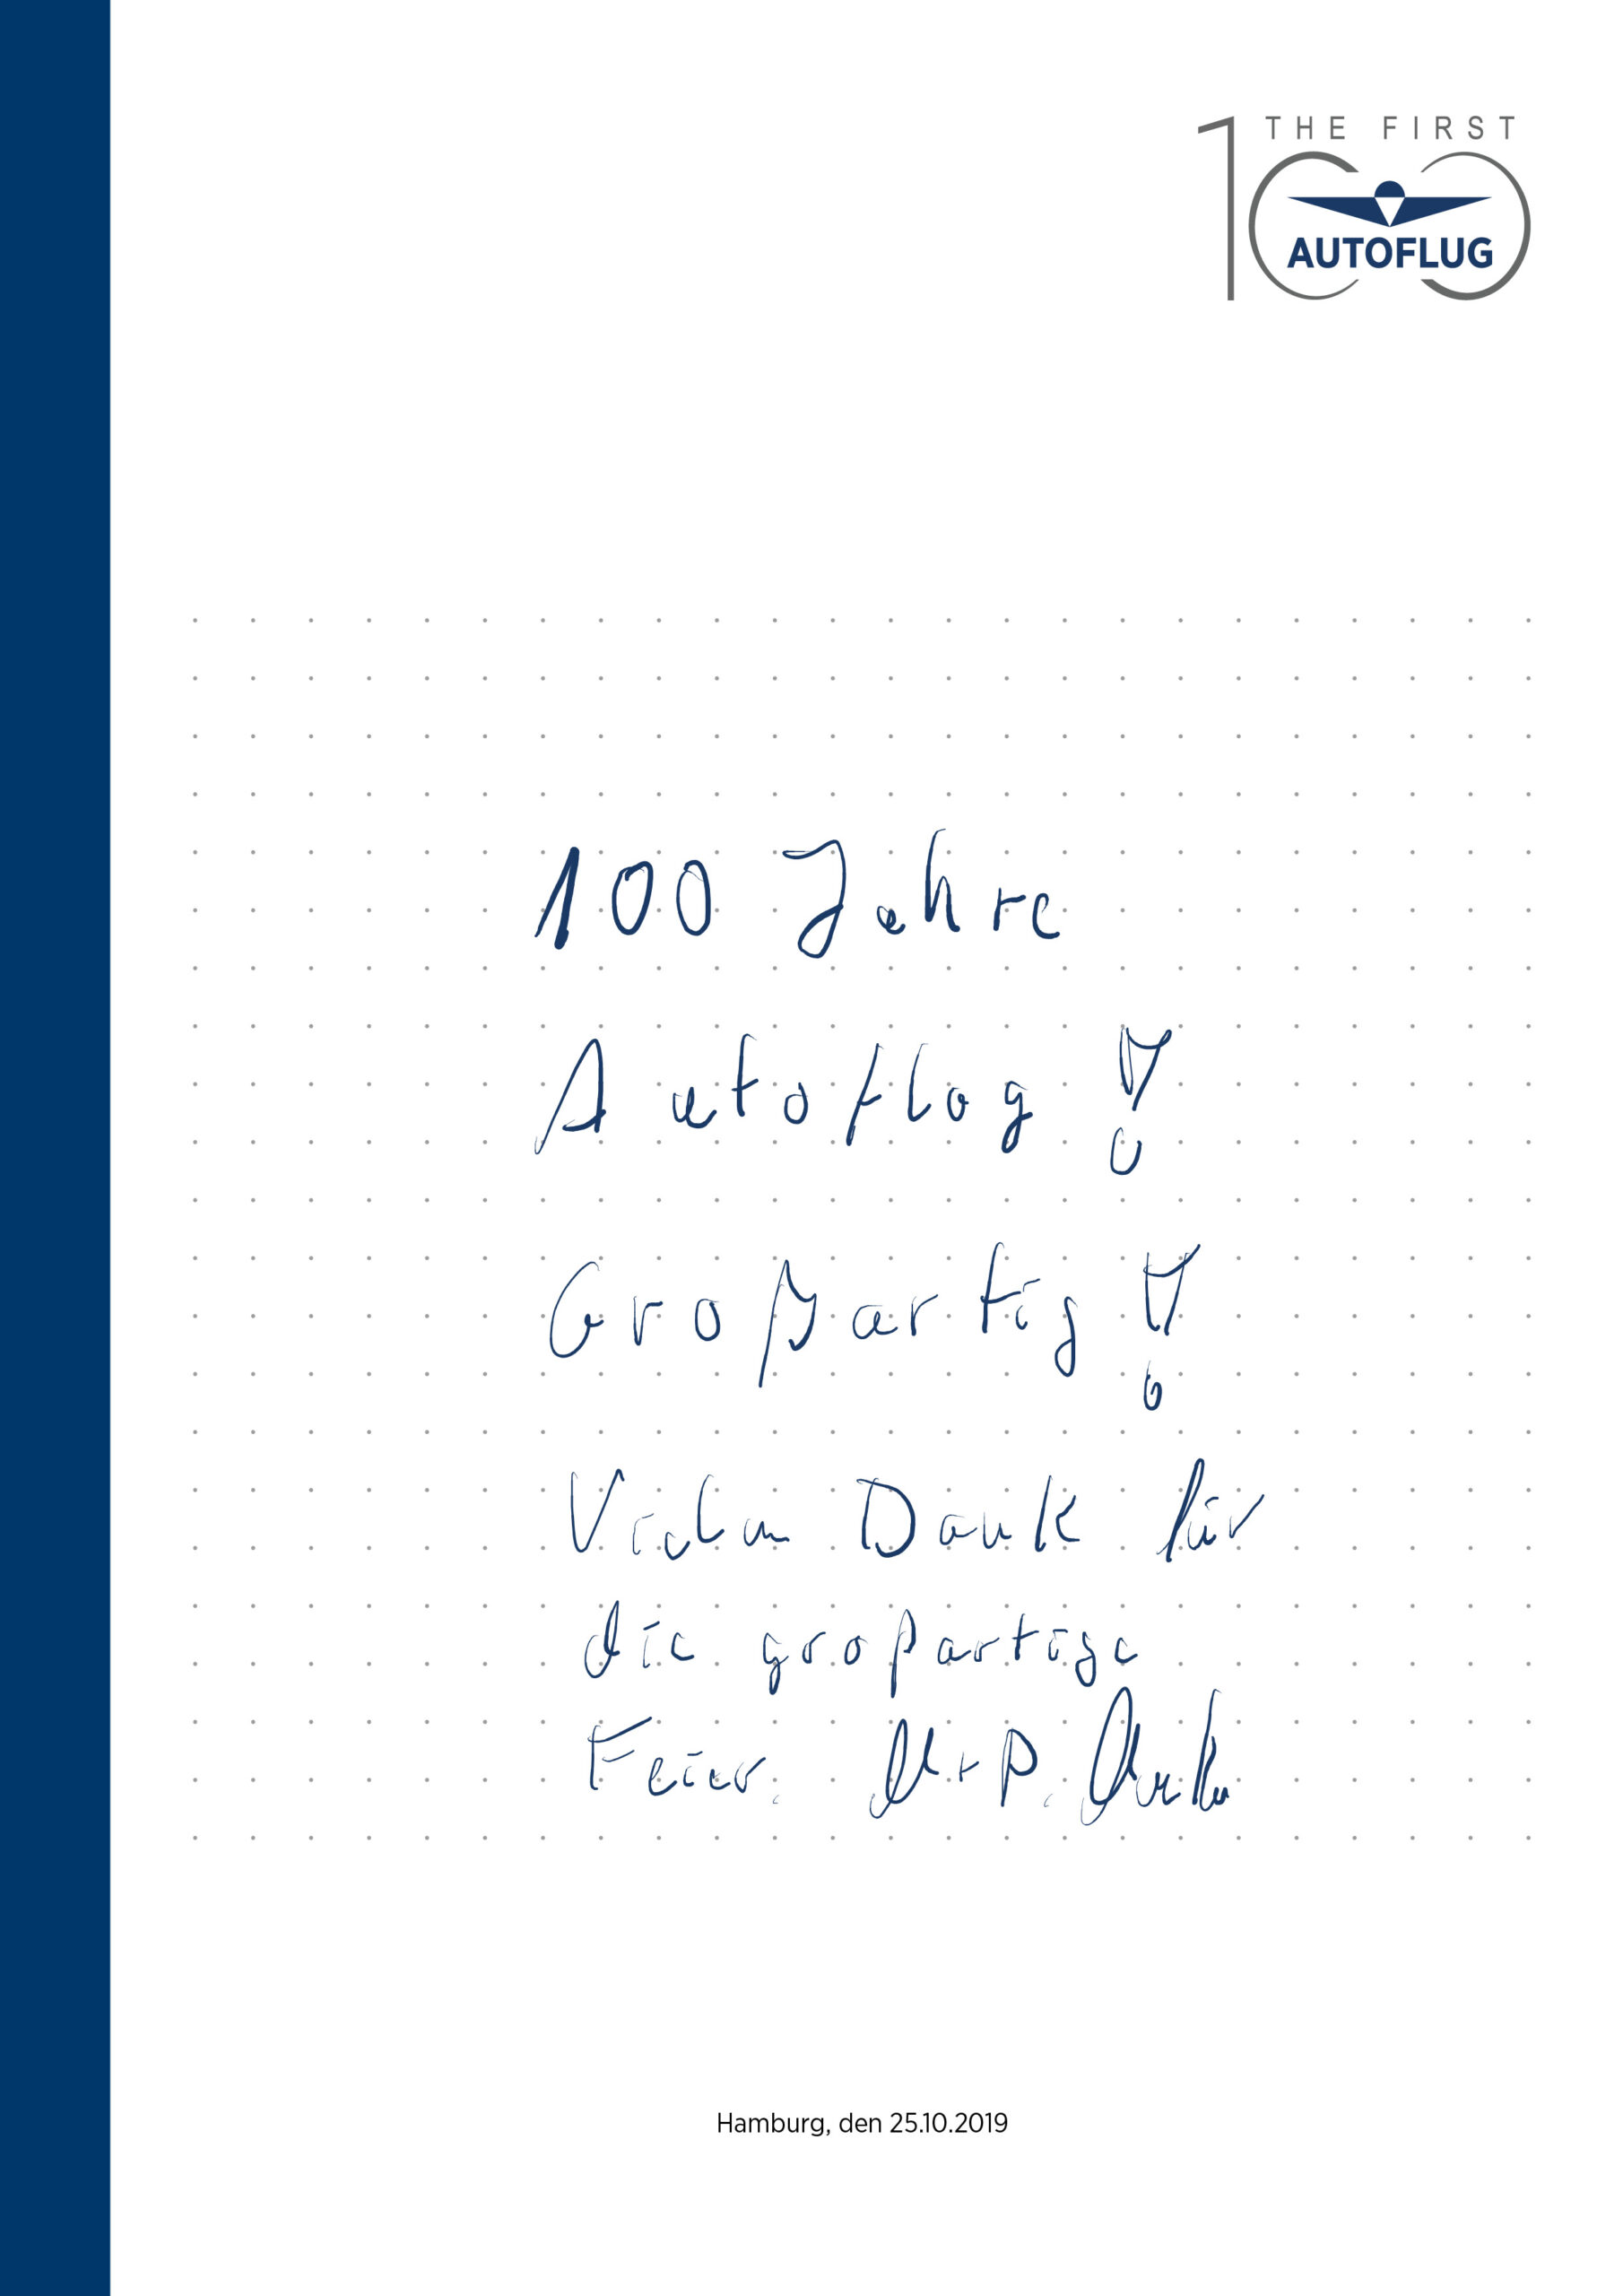 THE FIRST
100
AUTOFLUG
100 Jahre
Autoflug!
Großartig!
Vielen Dank für
die großartige
Feier.
Hamburg, den 25.10.2019